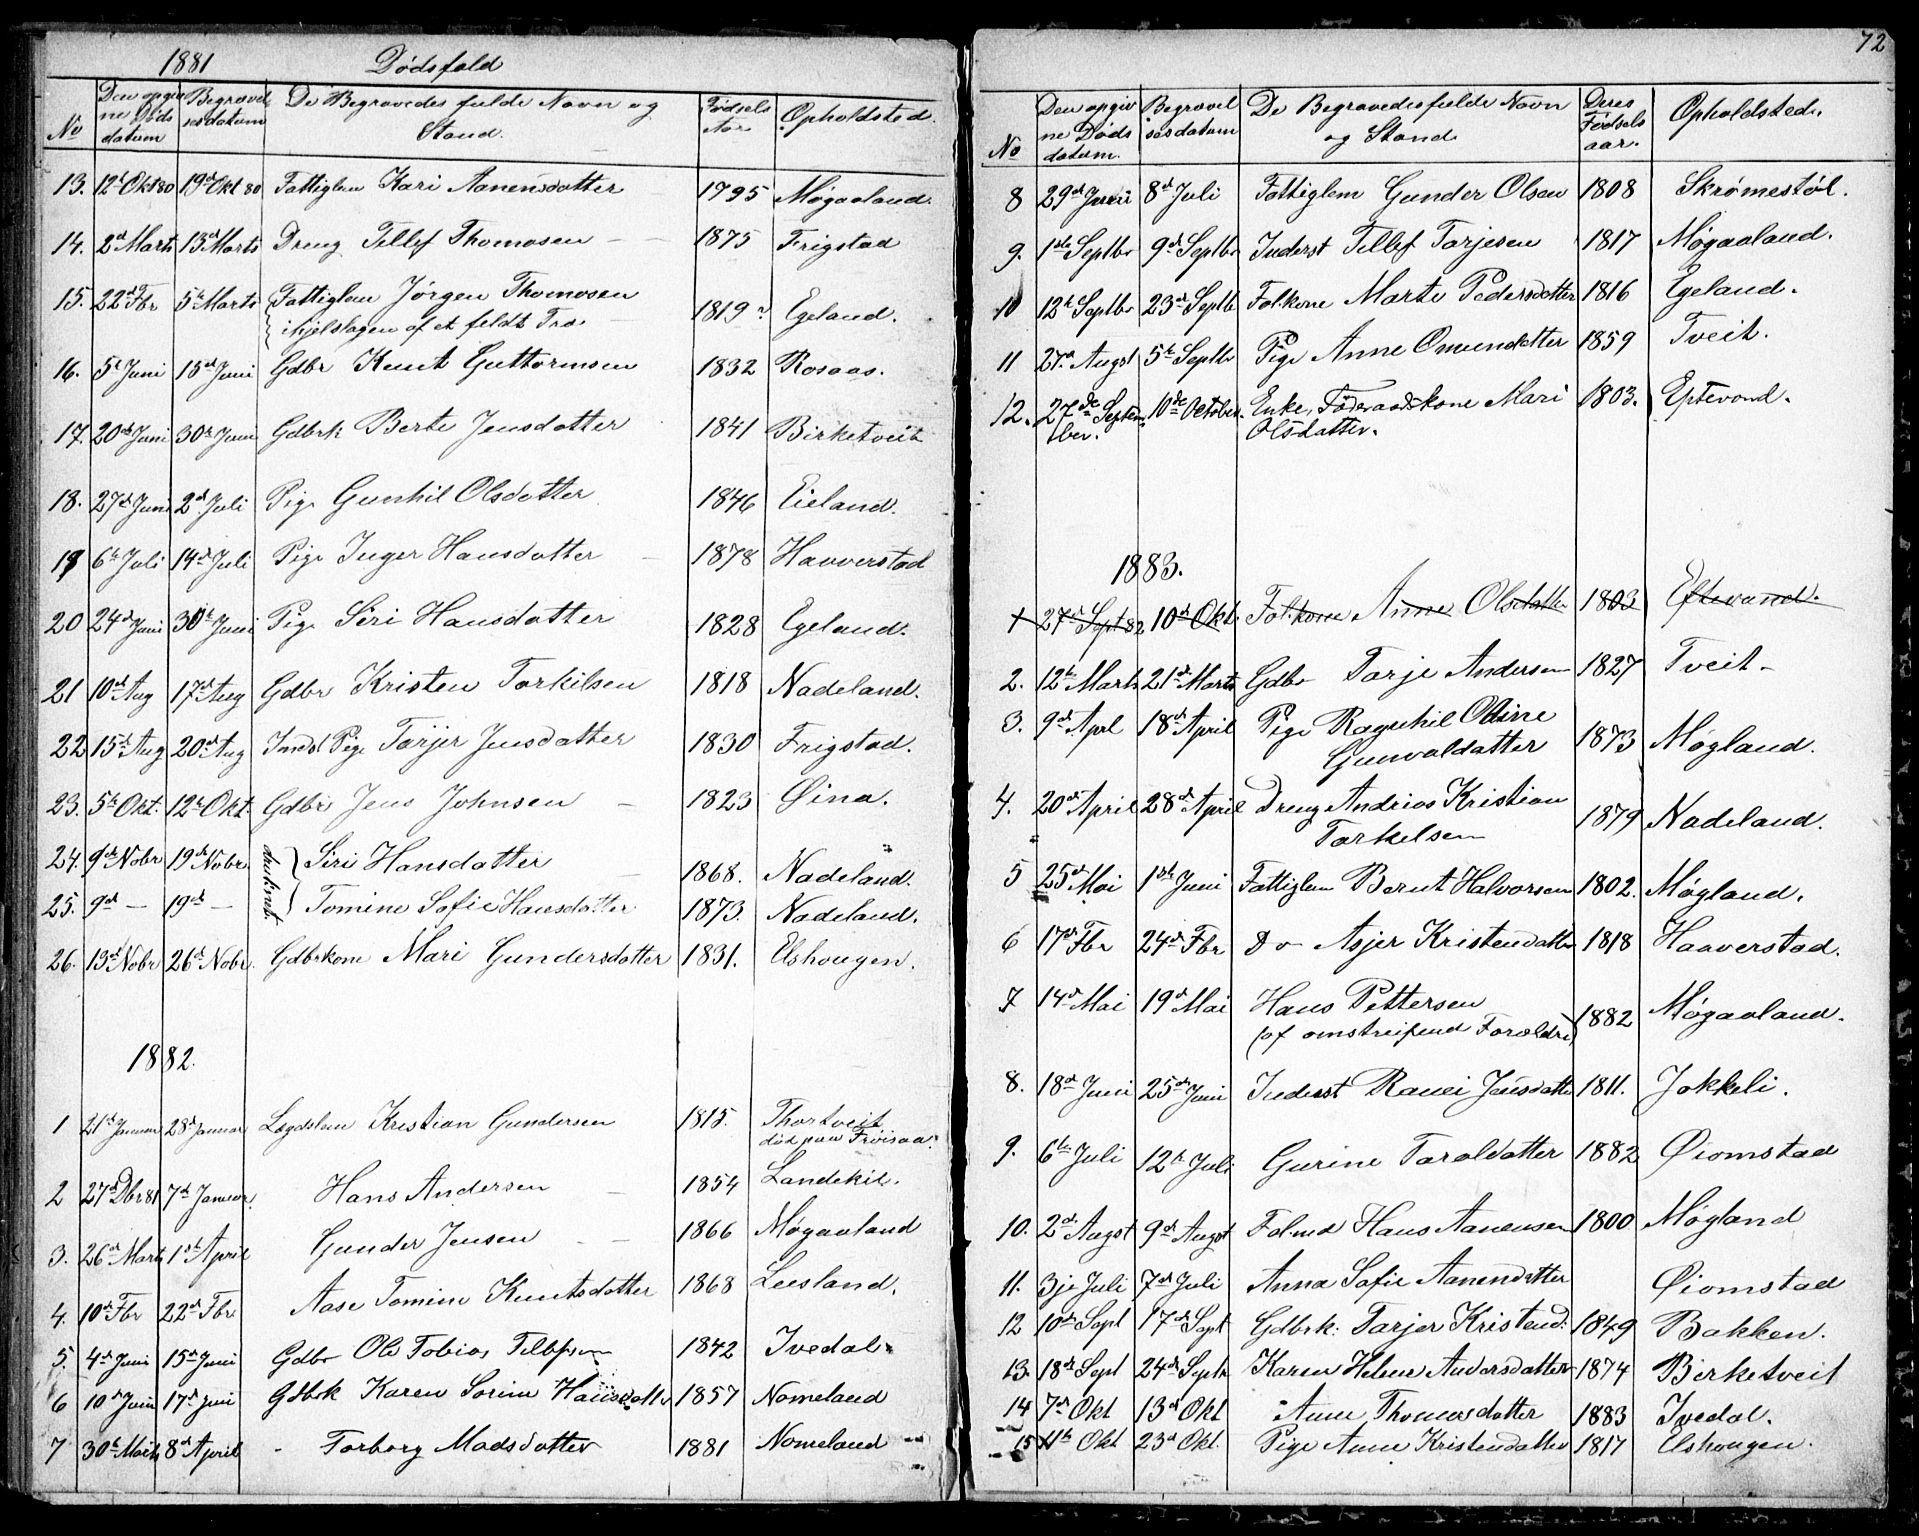 1881 Dødsfald
No Den opgivne Døds datum Begravelsesdatum De Begravedes fulde Navn og Stand. Fødsels Aar Opholdsted.
13. 12t Okt 80 19d Okt 80 Fattiglem Kari Aanensdatter 1795 Møgaaland.
14. 2d Marts 13d Marts Dreng Tellef Thomosen 1875 Frigstad
15. 22d Fbr 5t Marts Fattiglem Jørgen Thomosen 1819 Egeland.
ihjelslagen af et feldt Træ
16. 5t Juni 15d Juni Gdbr Knut Guttormsen 1832 Rosaas.
17. 20d Juni 30t Juni Gdbrk Berte Jensdatter 1841 Birketveit
18. 27d Juni 2d Juli Pige Gunhil Olsdatter 1846 Eieland.
19 6t Juli 14d Juli Pige Inger Hansdatter 1878 Haaverstad
20 24d Juni 30t Juni Pige Siri Hansdatter 1828 Egeland.
21 10d Aug 17d Aug Gdbr Kristen Torkilsen 1818 Nadeland.
22 15d Aug 20d Aug Indst Pige Tarjer Jensdatter 1830 Frigstad.
23. 5t Okt. 12t Okt. Gdbr Jens Johnsen 1823 Øina.
24. 9d Nobr 19d Nobr. druknet Siri Hansdatter 1868. Nadeland.
25. 9d — 19d — Tomine Sofie Hansdatter 1873. Nadeland.
26. 13d Nobr 26d Nobr. Gdbrkone Mari Gundersdatter 1831. Elshougen.
1882.
1 21d Januar 28d Januar Lægdslem Kristian Gundersen 1815. Thortveit
død paa Frøisaa
2 27d Dbr 81 7d Januar. Hans Andersen 1854 Landekil.
3. 26d Marts 1st April Gunder Jensen 1866 Møgaaland
4. 10d Fbr 22d Fbr. Aase Tomine Knutsdatter 1868 Leesland.
5. 4d Juni 15d Juni Gdbr Ole Tobias Tellefsen 1842 Ivedal.
6 10d Juni 17d Juni Gdbrk Karen Sorine Hansdatter 1857 Nomeland
7 30t Marts 8d April - Torborg Madsdatter 1881 Nomeland
72
No Den opgivne Døds datum. Begravelsesdatum De Begravedes fulde Navn og Stand Deres Fødsels aar. Opholdsted.
8 29d Juni 8d Juli Fattiglem Gunder Olsen 1808 Skrømestøl.
9. 1ste Septbr 9d Septbr Inderst Tellef Tarjesen 1817 Møgaaland.
10 12t Septbr 23d Septb Fol.kone Marte Pedersdatter 1816 Egeland.
11 27d Augst 5t Septbr Pige Anne Omundatter 1859 Tveit.
12. 27de September. 10de October. Enke, Føderaadskone Mari 1803. Eptevand.
Olsdatter.
1883.
1 27d Sept 82 10d Okt. Fol.kone Anne Olsdatter 1803 Eftevand.
2. 12t Marts 21d Marts Gdbr Tarje Andersen 1827 Tveit
3. 9d Aprl 18d April Pige Ragnhil Oline
Gunvaldatter 1873 Møgland.
4. 20d April 28d April Dreng Andrias Kristian
Torkelsen 1879 Nadeland.
5 25d Mai 1ste Juni Fattiglem Bernt Halvorsen 1802. Møgland.
6 17d Fbr 24d Fbr Do Asjer Kristendatter 1818 Haaverstad.
7 14d Mai 19d Mai Hans Pettersen
(af omstreifend Forældre) 1882 Møgaaland.
8. 18d Juni 25d Juni Inderst Ranei Jensdatter 1811. Jokkeli.
9. 6t Juli 12t Juli Gurine Taraldatter 1882 Øiomstad
10. 2d Augst 9d Augst Fol.md Hans Aanensen 1800 Møgland
11. 3je Juli 7d Juli Anna Sofie Aanendatter Øiomstad
12 10d Sept 17d Sept Gdbrk: Tarjer Kristend: 1849 Bakken.
13. 18d Sept 24d Septr Karen Helene Andersdatter 1874 Birketveit
14 7d Okt 13d Okt Anne Thomasdatter 1883 Ivedal.
15 11t Okt 23d Okt. Pige Anne Kristendatter 1817 Elshougen.